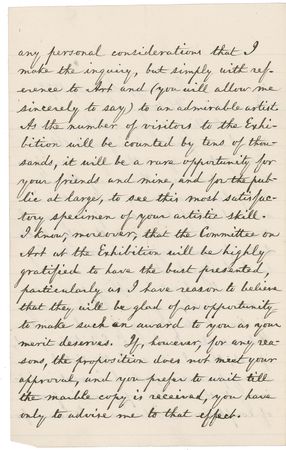 any personal considerations that I
make the inquiry, but simply with ref-
erence to Art and (you will allow me
sincerely to say) to an admirable artist.
As the number of visitors to the Exhi-
bition will be counted by tens of thou-
sands, it will be a rare opportunity for
your friends and mine, and for the pub-
lic at large, to see this most satisfac-
tory specimen of your artistic skill.
I know, moreover, that the Committee on
Art at the Exhibition will be highly
gratified to have the bust presented,
particularly as I have reason to believe
that they will be glad of an opportunity
to make such an award to you as your
merit deserves. If, however, for any rea-
sons, the proposition does not meet your
approval, and you prefer to wait till
the marble copy is received, you have
only to advise me to that effect.